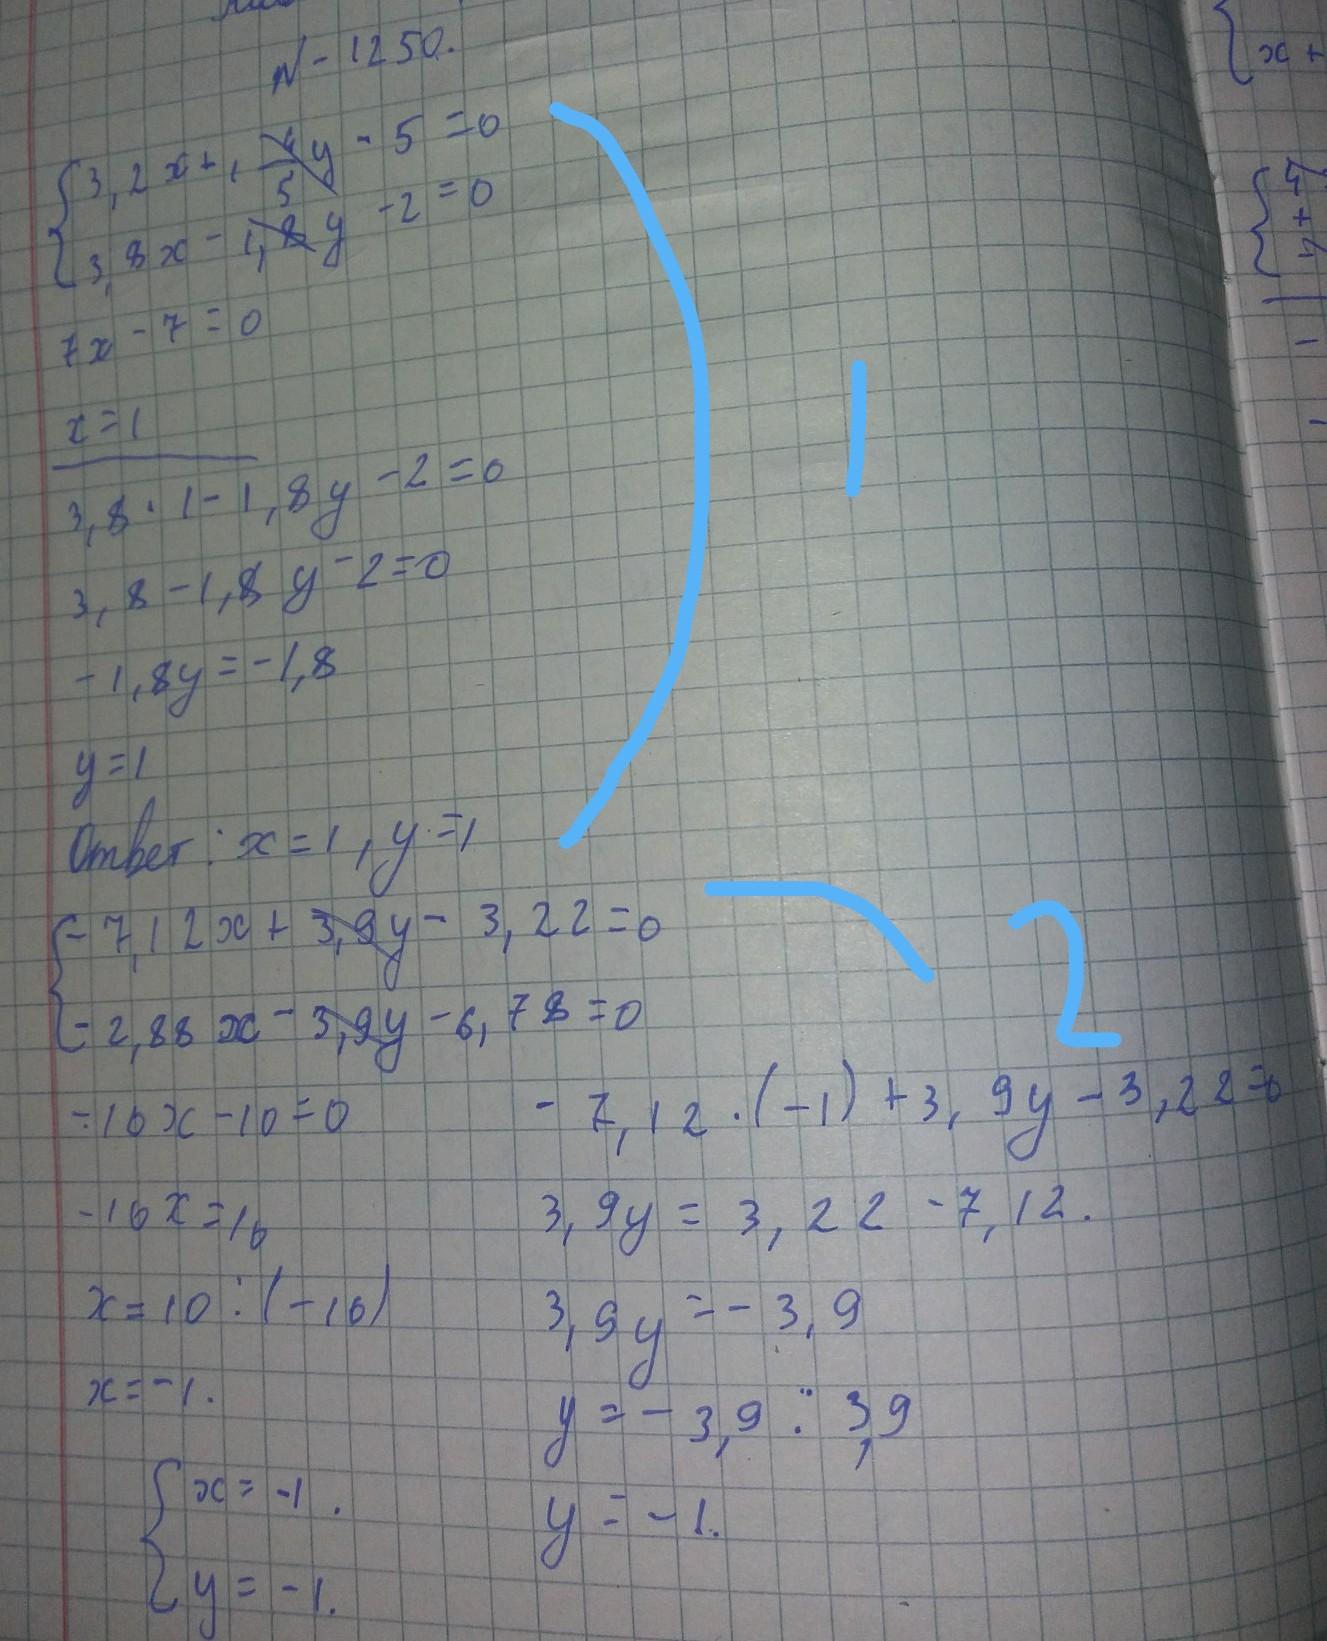 N - 1250.
{3,2x + 1 4/5 y - 5 = 0
{3,8x - 1,8y - 2 = 0
7x - 7 = 0
x = 1
3,8 · 1 - 1,8y - 2 = 0
3,8 - 1,8y - 2 = 0
- 1,8y = - 1,8
y = 1
Ответ: x = 1, y = 1
1
{- 7,12x + 3,9y - 3,22 = 0
{- 2,88x - 3,9y - 6,78 = 0
2
- 10x - 10 = 0
- 10x = 10
x = 10 : (-10)
x = -1.
- 7,12 · (-1) + 3,9y - 3,22 = 0
3,9y = 3,22 - 7,12.
3,9y = - 3,9
y = - 3,9 : 3,9
y = - 1.
{x = -1.
{y = -1.
x +